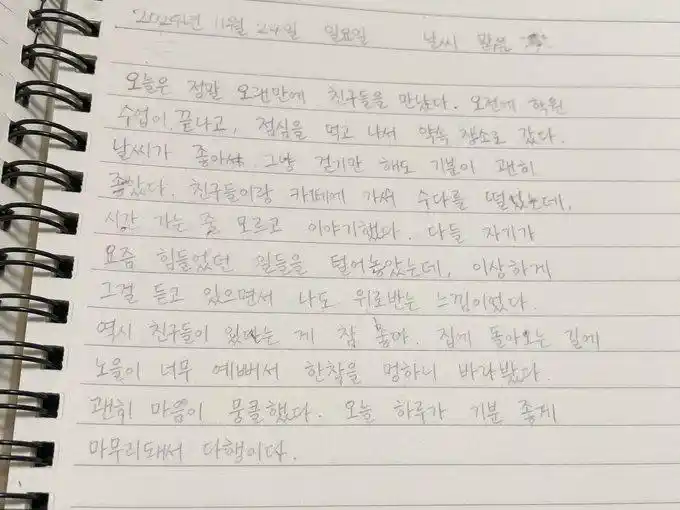 2024년 11월 24일 일요일 날씨 맑음
오늘은 정말 오랜만에 친구들을 만났다. 오전에 학원
수업이 끝나고, 점심을 먹고 나서 약속 장소로 갔다.
날씨가 좋아서 그냥 걷기만 해도 기분이 괜히
좋았다. 친구들이랑 카페에 가서 수다를 떨었는데,
시간 가는 줄 모르고 이야기했다. 다들 자기가
요즘 힘들었던 일들을 털어놓았는데, 이상하게
그걸 듣고 있으면서 나도 위로받는 느낌이었다.
역시 친구들이 있다는 게 참 좋다. 집에 돌아오는 길에
노을이 너무 예뻐서 한참을 멍하니 바라봤다.
괜히 마음이 뭉클했다. 오늘 하루가 기분 좋게
마무리돼서 다행이다.